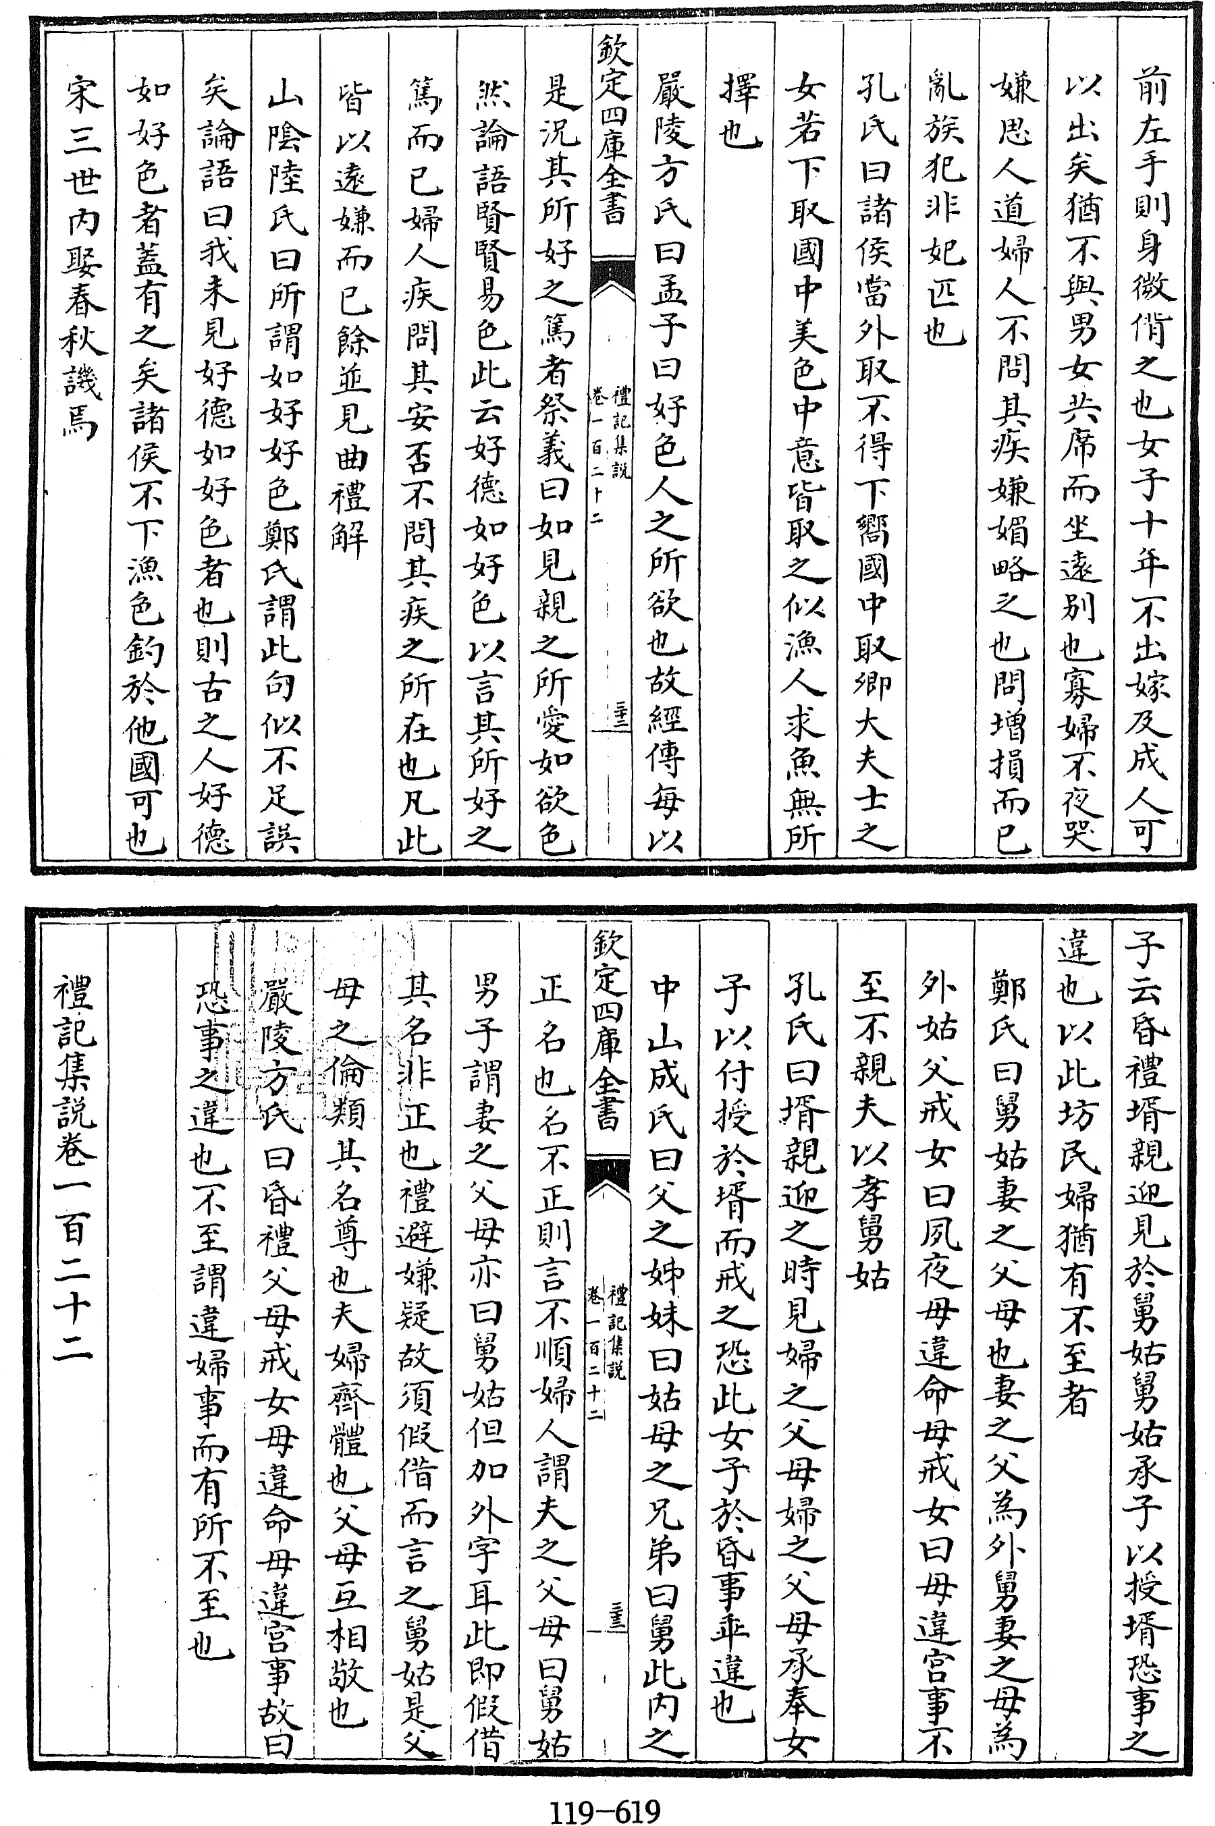 前左手則身微偝之也女子十年不出嫁及成人可
以出矣猶不與男女共席而坐遠别也寡婦不夜哭
嫌思人道婦人不問其疾嫌媚略之也問增損而已
亂族犯非妃匹也
孔氏曰諸侯當外取不得下嚮國中取卿大夫士之
女若下取國中美色中意皆取之似漁人求魚無所
擇也
嚴陵方氏曰孟子曰好色人之所欲也故經傳每以
欽定四庫全書
禮記集説
卷一百二十二
三十三
是況其所好之篤者祭義曰如見親之所愛如欲色
然論語賢賢易色此云好德如好色以言其所好之
篤而已婦人疾問其安否不問其疾之所在也凡此
皆以遠嫌而已餘並見曲禮解
山陰陸氏曰所謂如好好色鄭氏謂此句似不足誤
矣論語曰我未見好德如好色者也則古之人好德
如好色者蓋有之矣諸侯不下漁色釣於他國可也
宋三世内娶春秋譏焉
子云昏禮壻親迎見於舅姑舅姑承子以授壻恐事之
違也以此坊民婦猶有不至者
鄭氏曰舅姑妻之父母也妻之父為外舅妻之母為
外姑父戒女曰夙夜毋違命母戒女曰毋違宫事不
至不親夫以孝舅姑
孔氏曰壻親迎之時見婦之父母婦之父母承奉女
子以付授於壻而戒之恐此女子於昏事乖違也
中山成氏曰父之姊妹曰姑母之兄弟曰舅此内之
欽定四庫全書
禮記集説
卷一百二十二
三十三
正名也名不正則言不順婦人謂夫之父母曰舅姑
男子謂妻之父母亦曰舅姑但加外字耳此即假借
其名非正也禮避嫌疑故須假借而言之舅姑是父
母之倫類其名尊也夫婦齊體也父母互相敬也
嚴陵方氏曰昏禮父母戒女毋違命毋違宫事故曰
恐事之違也不至謂違婦事而有所不至也
禮記集説卷一百二十二
119-619